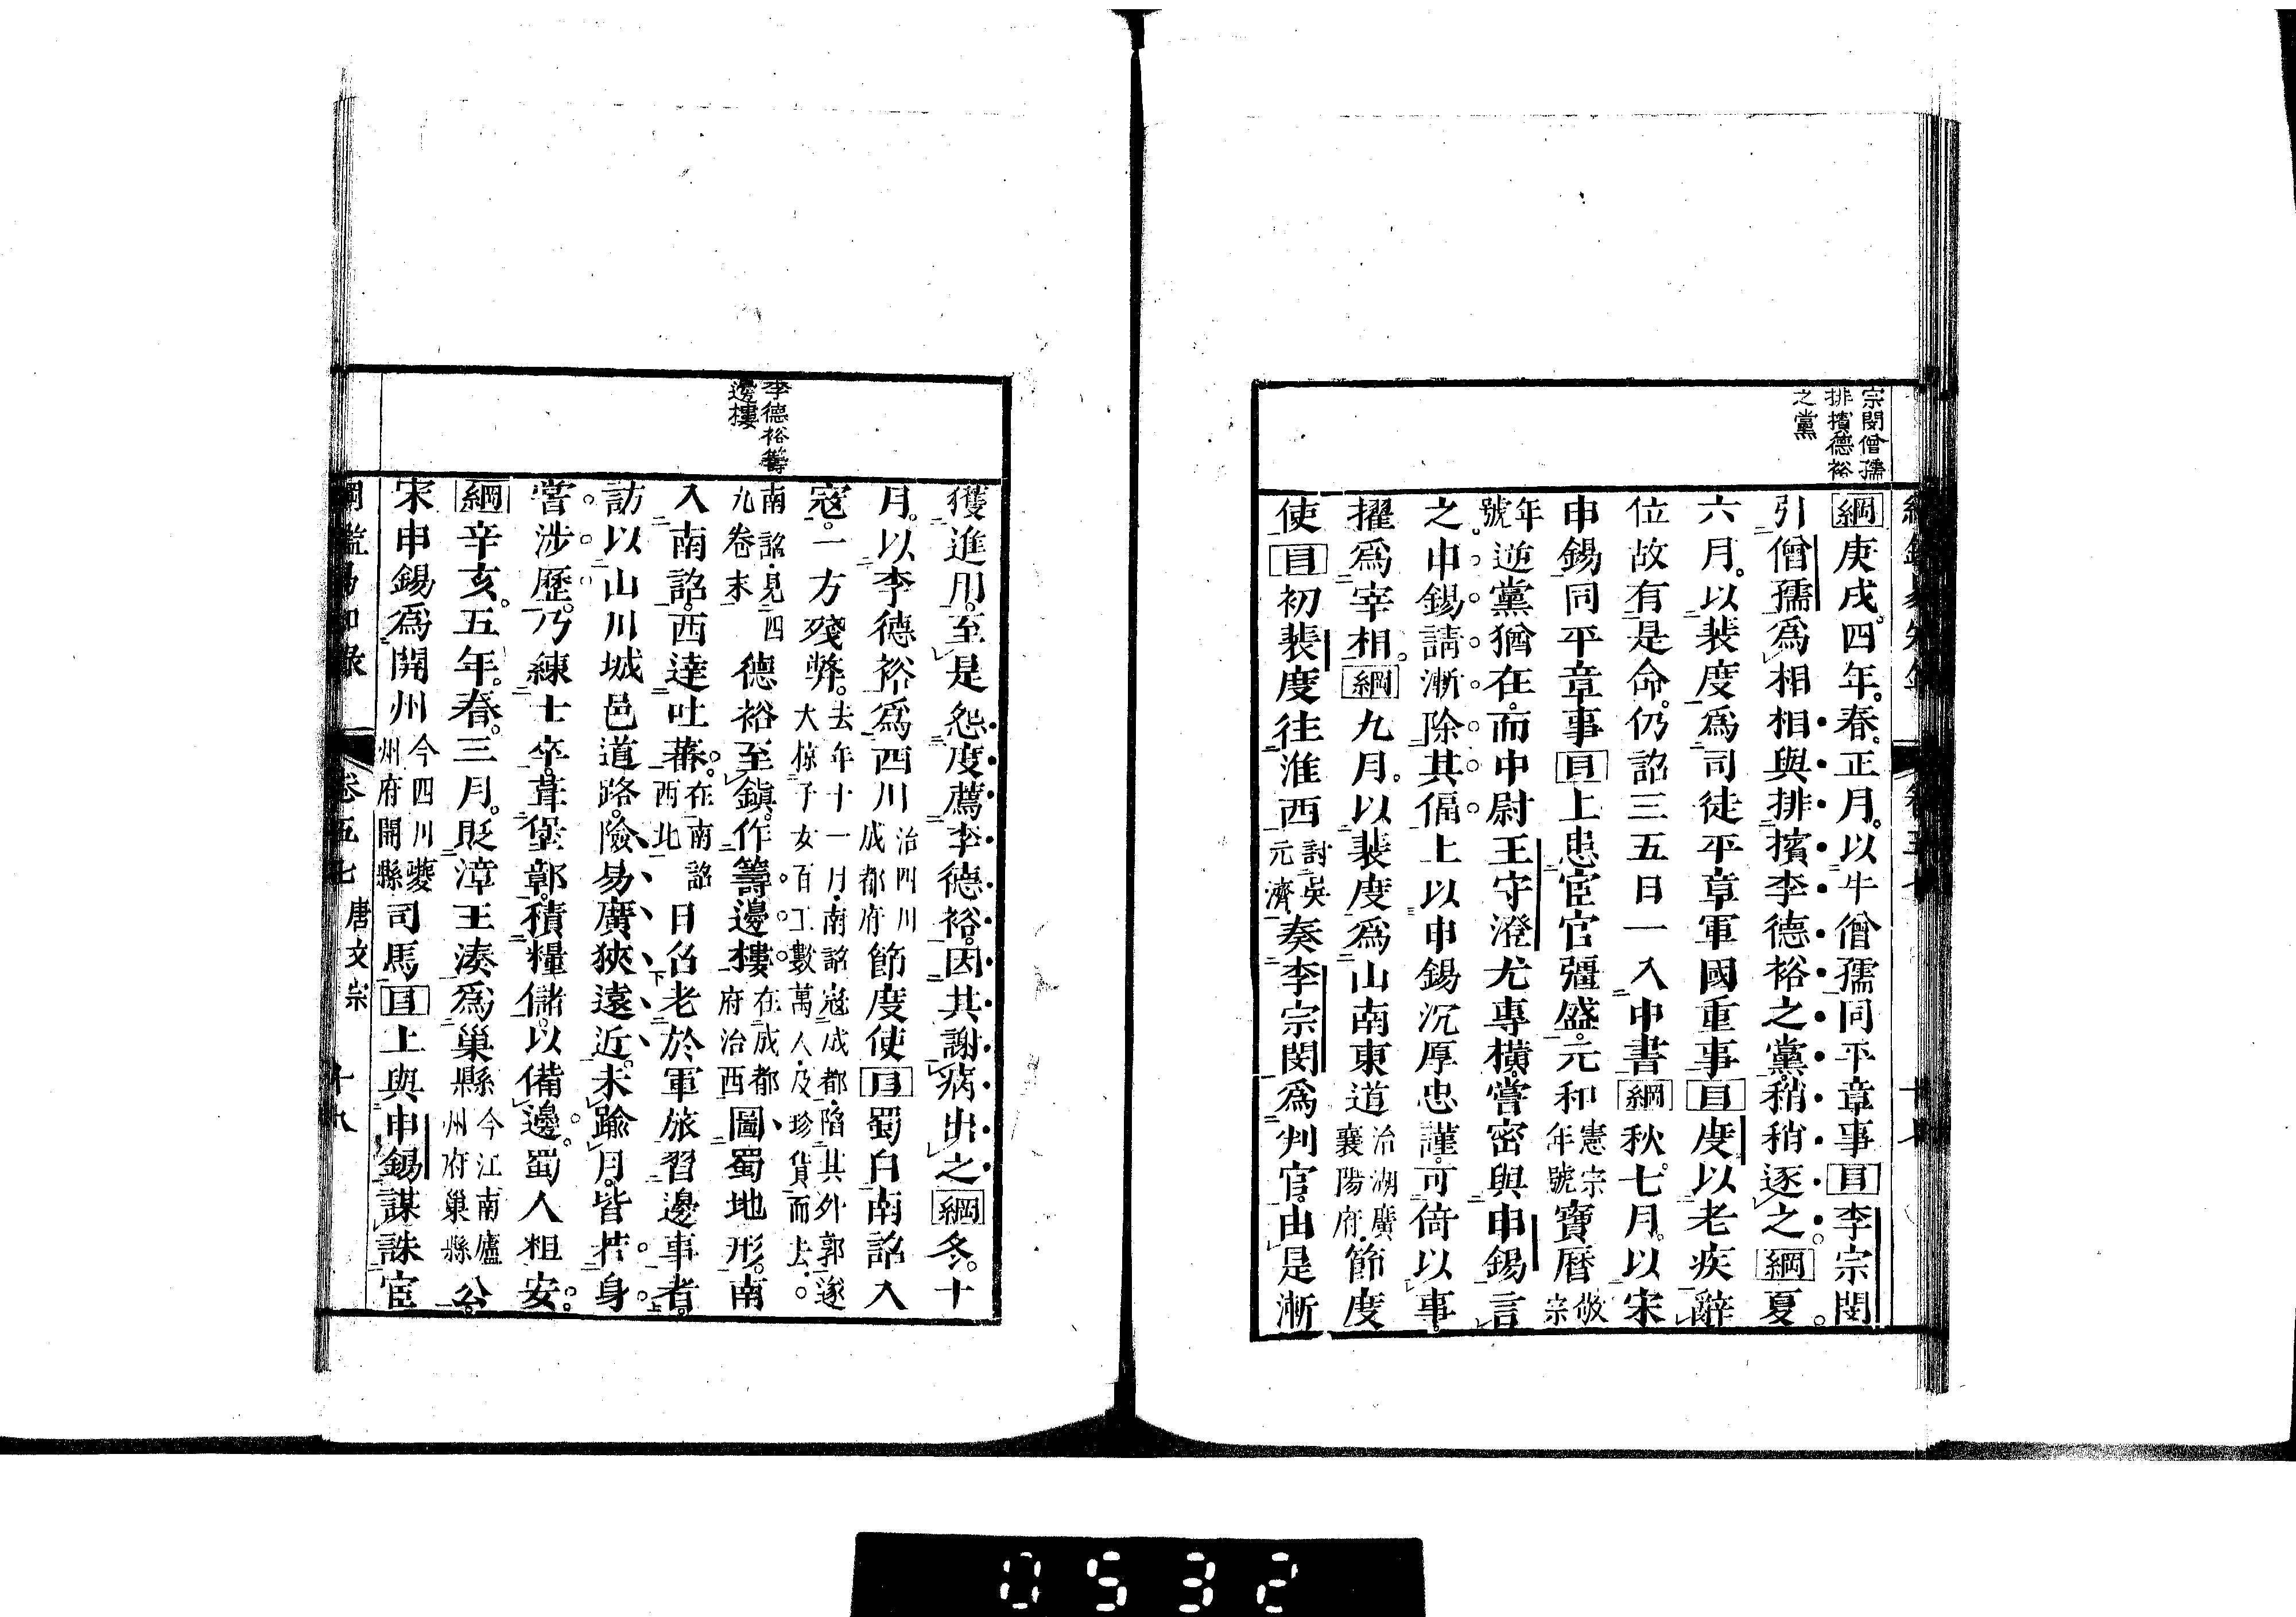 宗閔僧孺
排擯德裕
之黨
綱庚戌。四年。春。正月。以牛僧孺同平章事目李宗閔
引僧孺爲相相與排擯李德裕之黨。稍稍逐之。綱夏。
六月。以裴度爲司徒平章軍國重事目度以老疾辭
位故有是命。仍詔三五日一入中書綱秋。七月。以宋
申錫同平章事目上患宦官彊盛。元和憲宗年號寶曆敬宗
年號逆黨猶在。而中尉王守澄尤專橫。嘗密與申錫言
之。申錫請漸除其偪上以申錫沉厚忠謹。可倚以事。
擢爲宰相。綱九月。以裴度爲山南東道治湖廣襄陽府。節度
使目初裴度往淮西討吳元濟奏李宗閔爲判官。由是漸
李德裕籌
邊樓
獲進用。至是怨度薦李德裕。因其謝病出之綱冬。十
月。以李德裕爲西川治四川成都府節度使目蜀自南詔入
寇。一方殘弊。去年十一月。南詔寇成都。陷其外郭。遂大掠子女百工數萬人。及珍貨而去。
南詔。見四九卷末德裕至鎭。作籌邊樓在成都府治西圖蜀地形。南
入南詔。西達吐蕃。在南詔西北日召老於軍旅習邊事者。
訪以山川城邑道路。險易廣狹遠近。未踰月。皆若身
嘗涉歷。乃練士卒。葺堡鄣。積糧儲。以備邊。蜀人粗安。
綱辛亥。五年。春。三月。貶漳王湊爲巢縣今江南廬州府巢縣公。
宋申錫爲開州今四川夔州府開縣司馬目上與申錫謀誅宦
卷五七 唐文宗 十八
0532